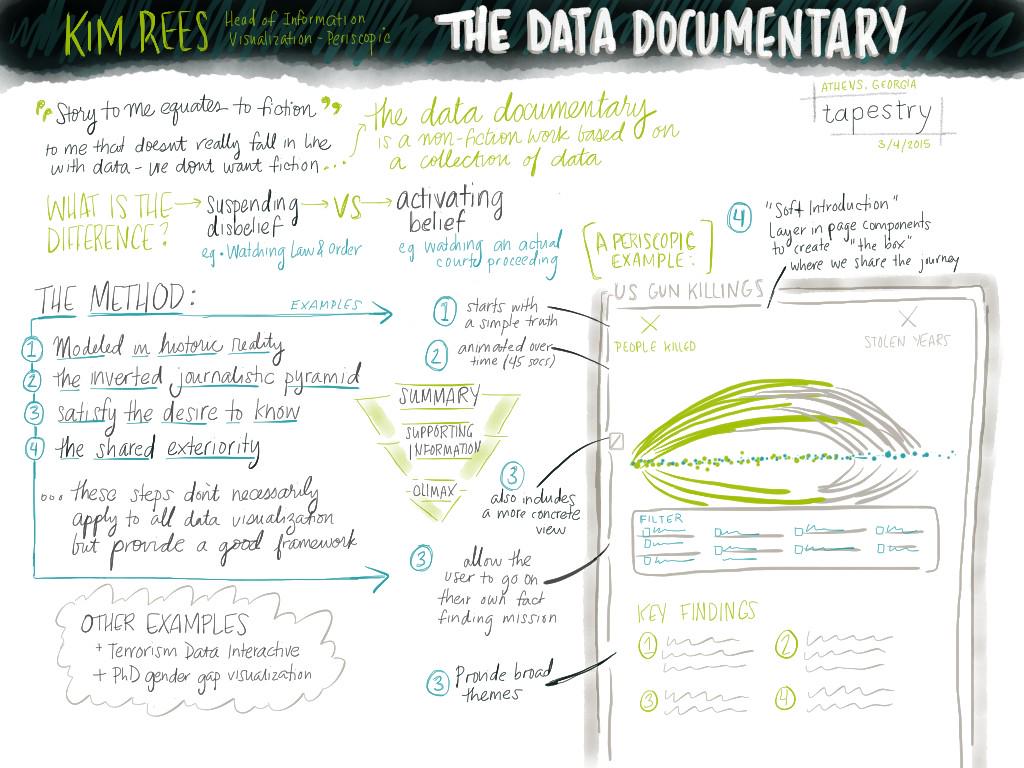 KIM REES
Head of Information
Visualization - Periscopic
THE DATA DOCUMENTARY
"Story to me equates to fiction"
to me that doesnt really fall in line
with data - we dont want fiction...
the data documentary
is a non-fiction work based on
a collection of data
ATHENS, GEORGIA
tapestry
3/4/2015
WHAT IS THE
DIFFERENCE?
suspending
disbelief
eg. Watching Law & Order
VS
activating
belief
eg watching an actual
court proceeding
A PERISCOPIC
EXAMPLE:
4
"Soft Introduction"
Layer in page components
to create "the box"
where we share the journey
THE METHOD:
EXAMPLES
1 Modeled in historic reality
2 the inverted journalistic pyramid
3 satisfy the desire to know
4 the shared exteriority
... these steps don't necessarily
apply to all data visualization
but provide a good framework
OTHER EXAMPLES
+ Terrorism Data Interactive
+ PhD gender gap visualization
1 starts with
a simple truth
2 animated over
time (45 secs)
SUMMARY
SUPPORTING
INFORMATION
CLIMAX
3
also includes
a more concrete
view
3 allow the
user to go on
their own fact
finding mission
3 Provide broad
themes
US GUN KILLINGS
PEOPLE KILLED
STOLEN YEARS
FILTER
KEY FINDINGS
1
2
3
4